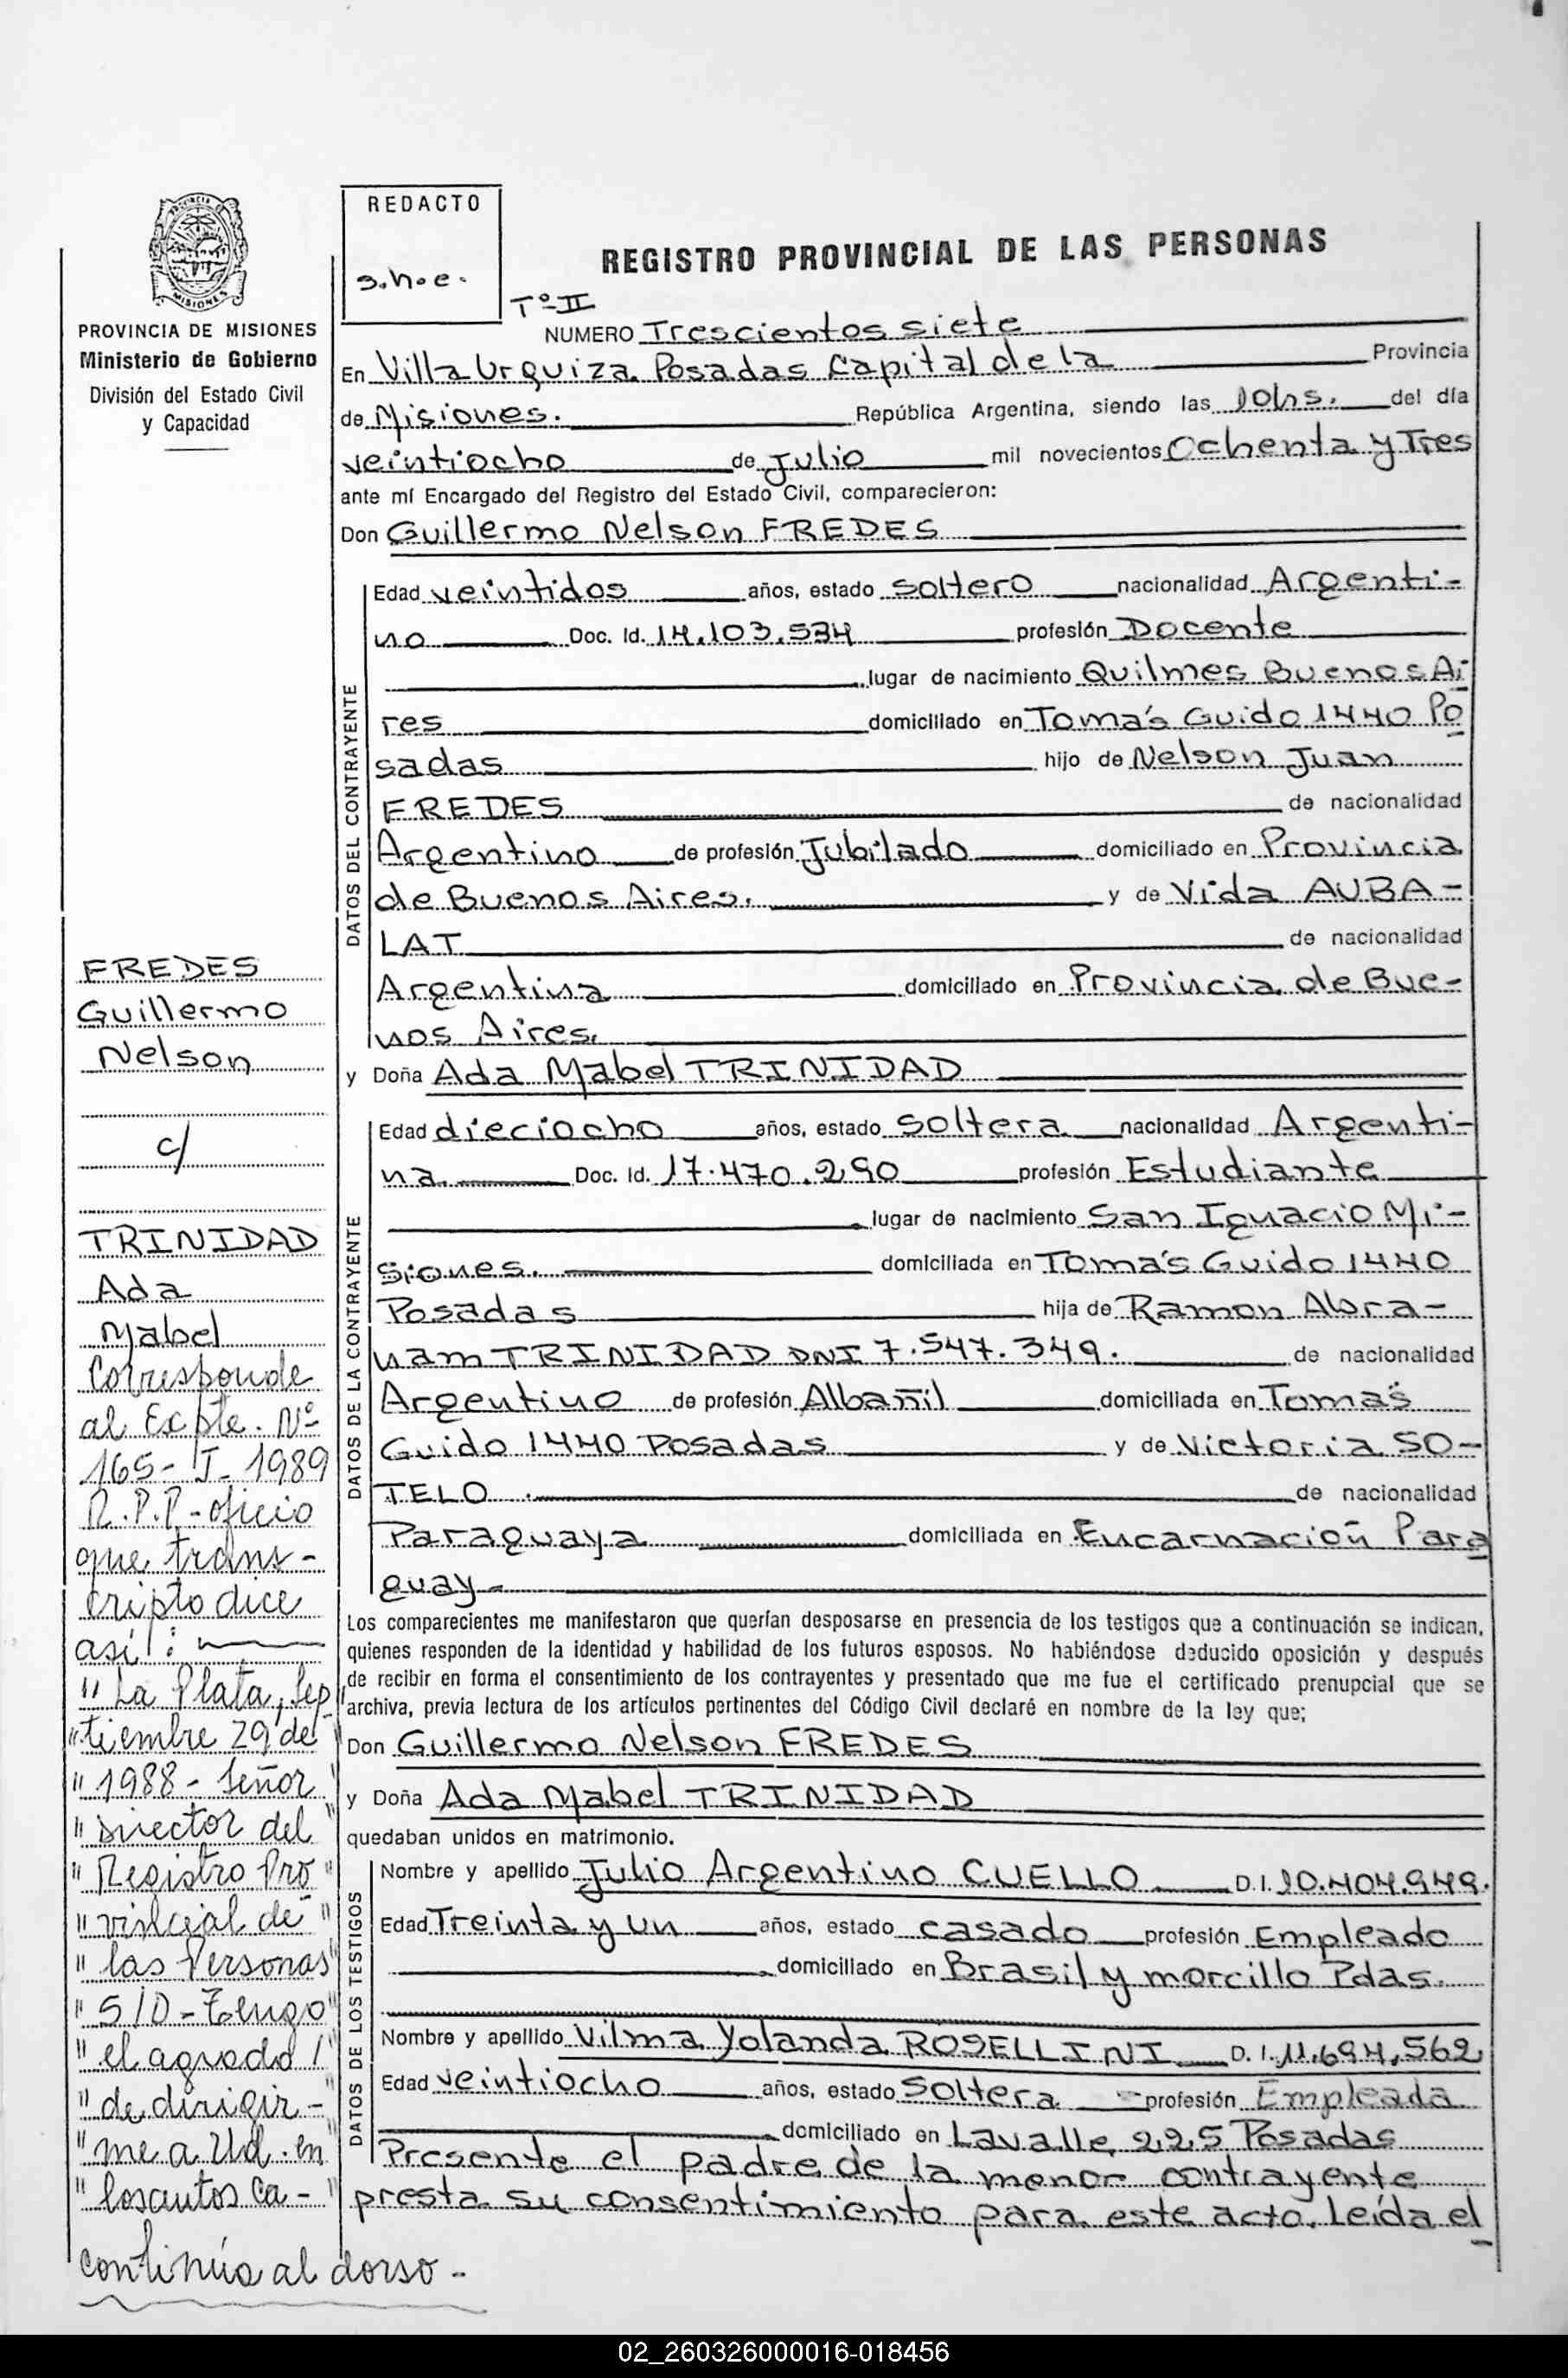 REDACTO
s.h.e.
REGISTRO PROVINCIAL DE LAS PERSONAS
Tº II
NUMERO Trescientos siete
PROVINCIA DE MISIONES
Ministerio de Gobierno
División del Estado Civil
y Capacidad
En Villa Urquiza Posadas Capital de la Provincia
de Misiones. República Argentina, siendo las 10hs. del día
veintiocho de Julio mil novecientos Ochenta y Tres
ante mí Encargado del Registro del Estado Civil, comparecieron:
Don Guillermo Nelson FREDES
DATOS DEL CONTRAYENTE
Edad veintidos años, estado soltero nacionalidad Argenti-
no Doc. Id. 14.103.534 profesión Docente
lugar de nacimiento Quilmes Buenos Ai
res domiciliado en Tomás Guido 1440 Po
sadas hijo de Nelson Juan
FREDES de nacionalidad
Argentino de profesión Jubilado domiciliado en Provincia
de Buenos Aires. y de Vida AUBA-
LAT de nacionalidad
Argentina domiciliado en Provincia de Bue-
nos Aires.
y Doña Ada Mabel TRINIDAD
DATOS DE LA CONTRAYENTE
Edad dieciocho años, estado soltera nacionalidad Argenti-
na. Doc. Id. 17.470.290 profesión Estudiante
lugar de nacimiento San Ignacio Mi-
siones. domiciliada en Tomás Guido 1440
Posadas hija de Ramon Abra-
nam TRINIDAD DNI 7.547.349. de nacionalidad
Argentino de profesión Albañil domiciliada en Tomás
Guido 1440 Posadas y de Victoria SO-
TELO. de nacionalidad
Paraguaya domiciliada en Encarnación Para
guay-
Los comparecientes me manifestaron que querían desposarse en presencia de los testigos que a continuación se indican,
quienes responden de la identidad y habilidad de los futuros esposos. No habiéndose deducido oposición y después
de recibir en forma el consentimiento de los contrayentes y presentado que me fue el certificado prenupcial que se
archiva, previa lectura de los artículos pertinentes del Código Civil declaré en nombre de la ley que;
Don Guillermo Nelson FREDES
y Doña Ada Mabel TRINIDAD
quedaban unidos en matrimonio.
DATOS DE LOS TESTIGOS
Nombre y apellido Julio Argentino CUELLO D.I. 10.404.949.
Edad Treinta y un años, estado casado profesión Empleado
domiciliado en Brasil y morcillo Pdas.
Nombre y apellido Vilma Yolanda ROSELLINI D.I. 11.694.562
Edad veintiocho años, estado Soltera profesión Empleada
domiciliado en Lavalle 225 Posadas
Presente el padre de la menor contrayente
presta su consentimiento para este acto. Leída el
FREDES
Guillermo
Nelson
c/
TRINIDAD
Ada
Mabel
Corresponde
al Expte. Nº
165- J- 1989
R.P.P.- oficio
que trans-
cripto dice
así:
"La Plata, Sep
"tiembre 29 de "
"1988- Señor "
"Director del "
"Registro Pro "
"vincial de "
"las Personas "
"S/D- Tengo "
"el agrado / "
"de dirigir- "
"me a Ud. en "
"los autos Ca- "
continúa al dorso-
02_260326000016-018456